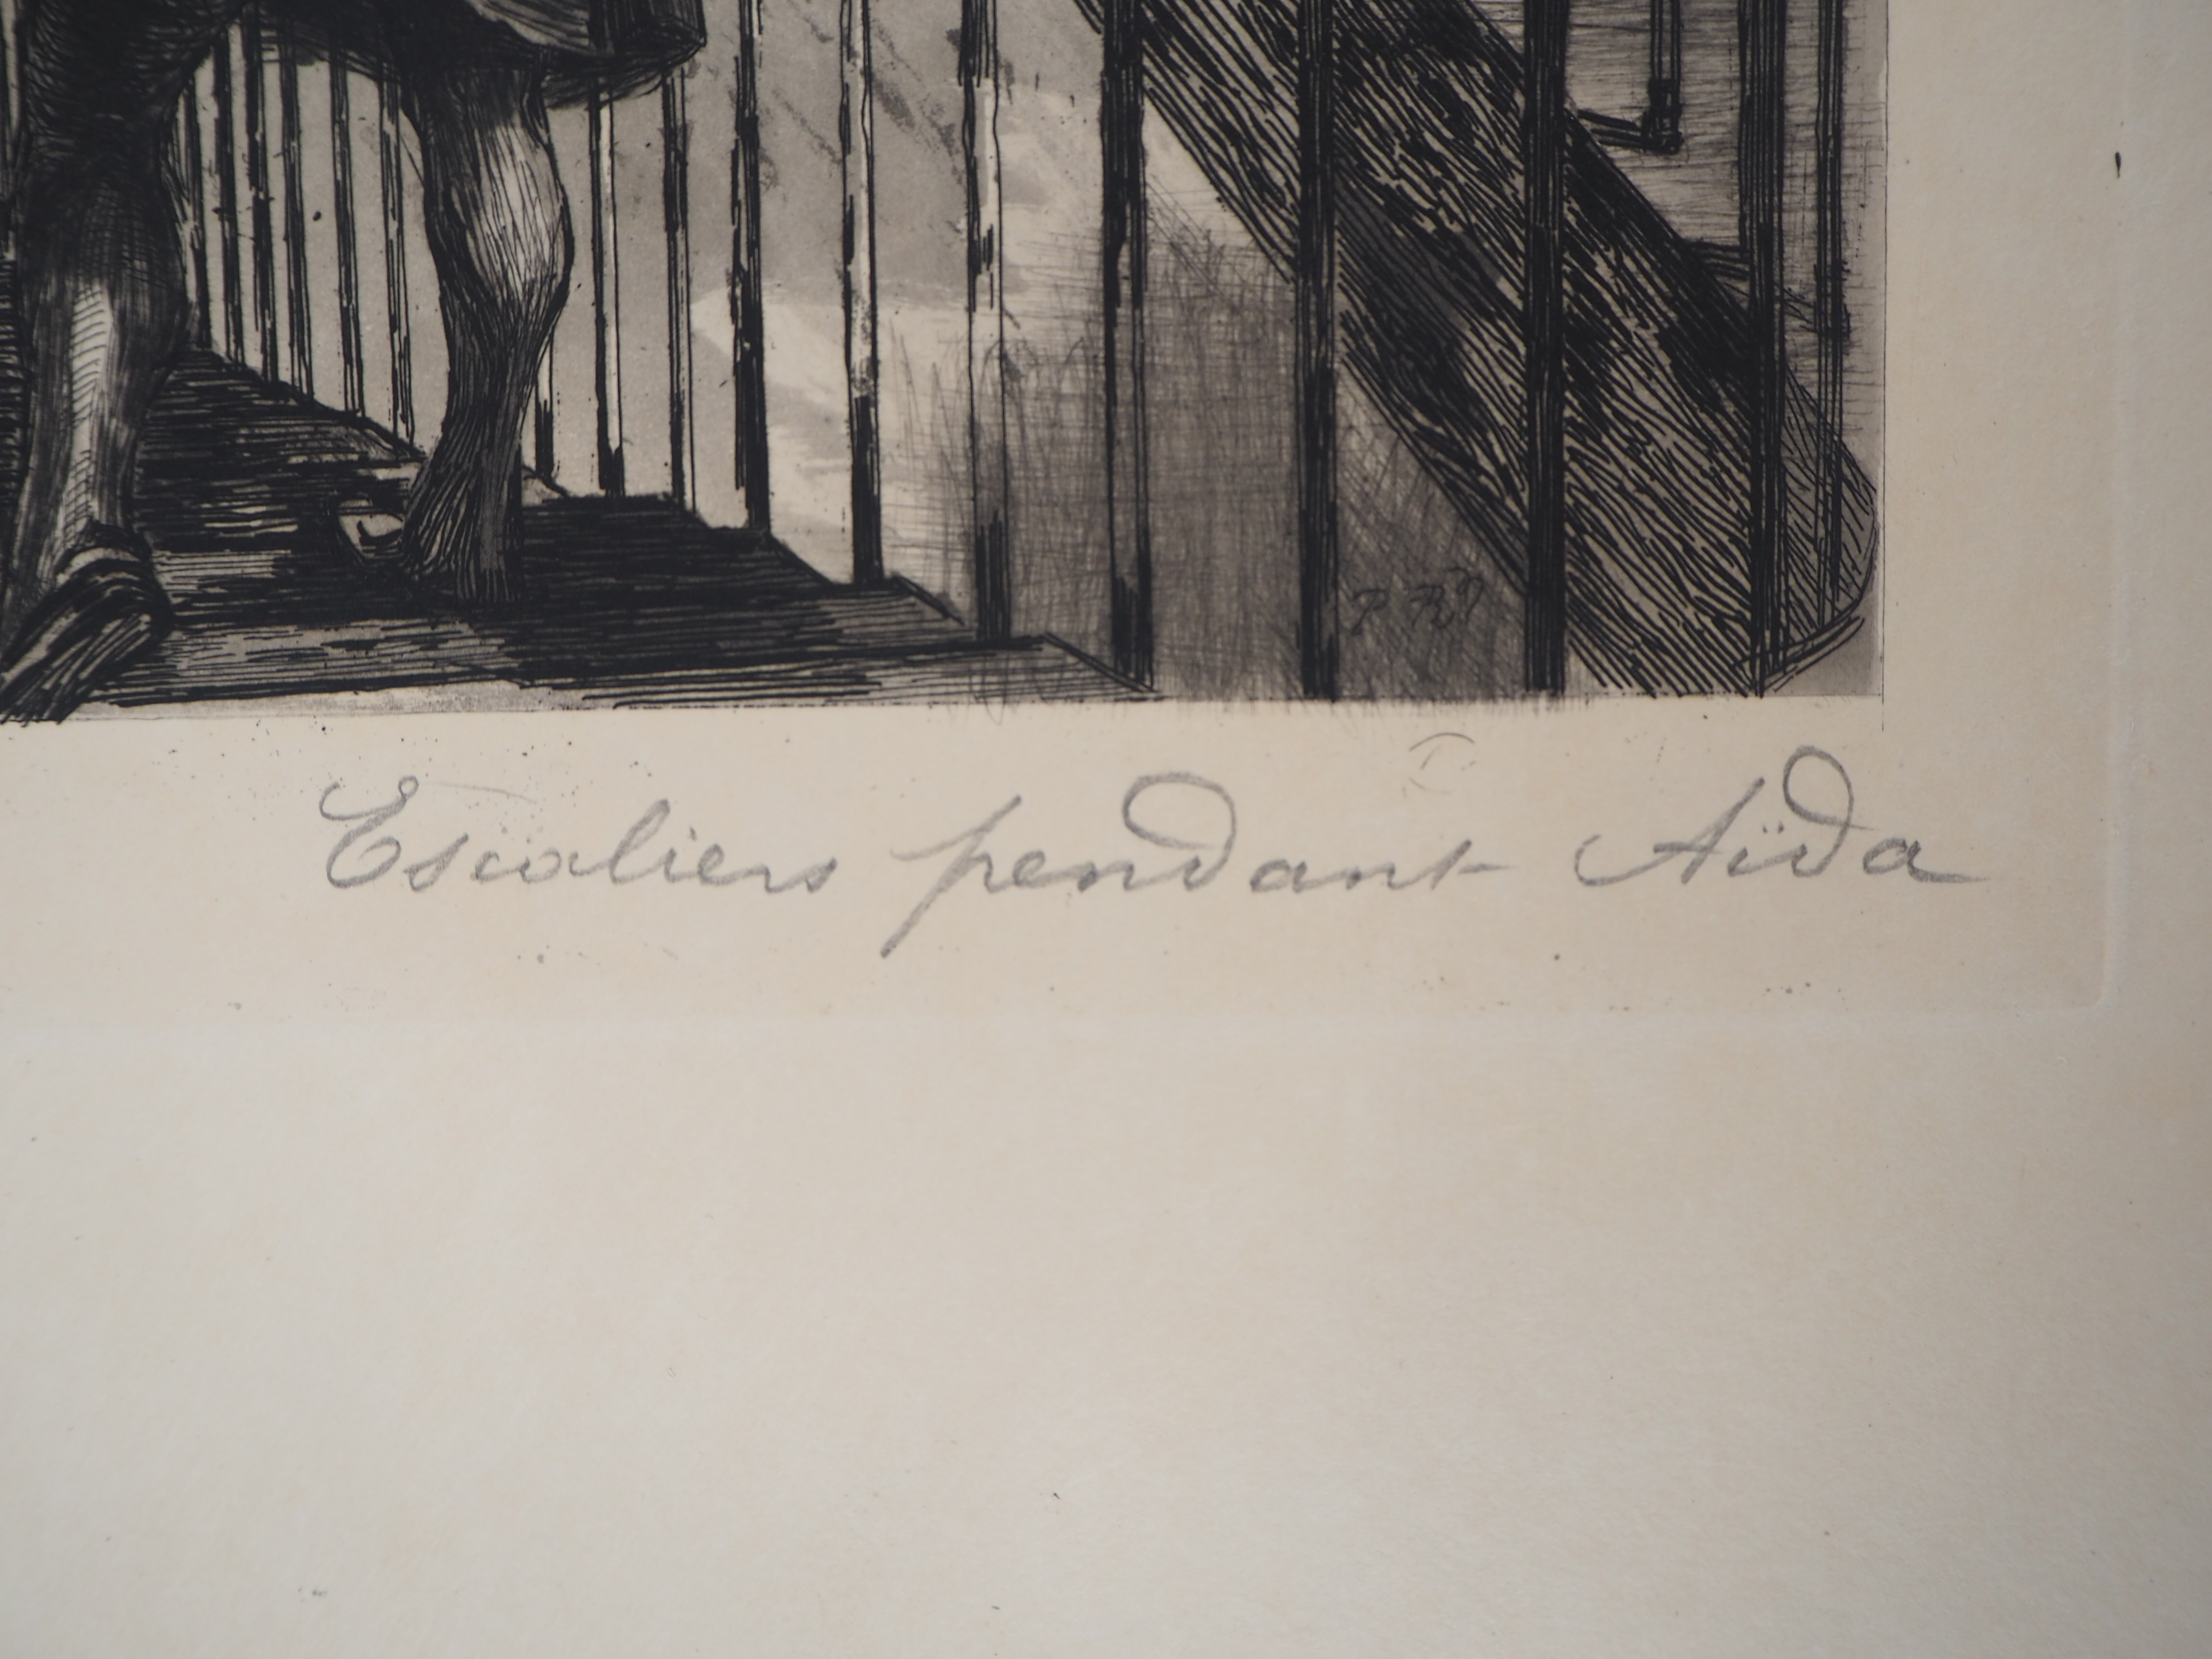 P. R
Escaliers pendant Aïda